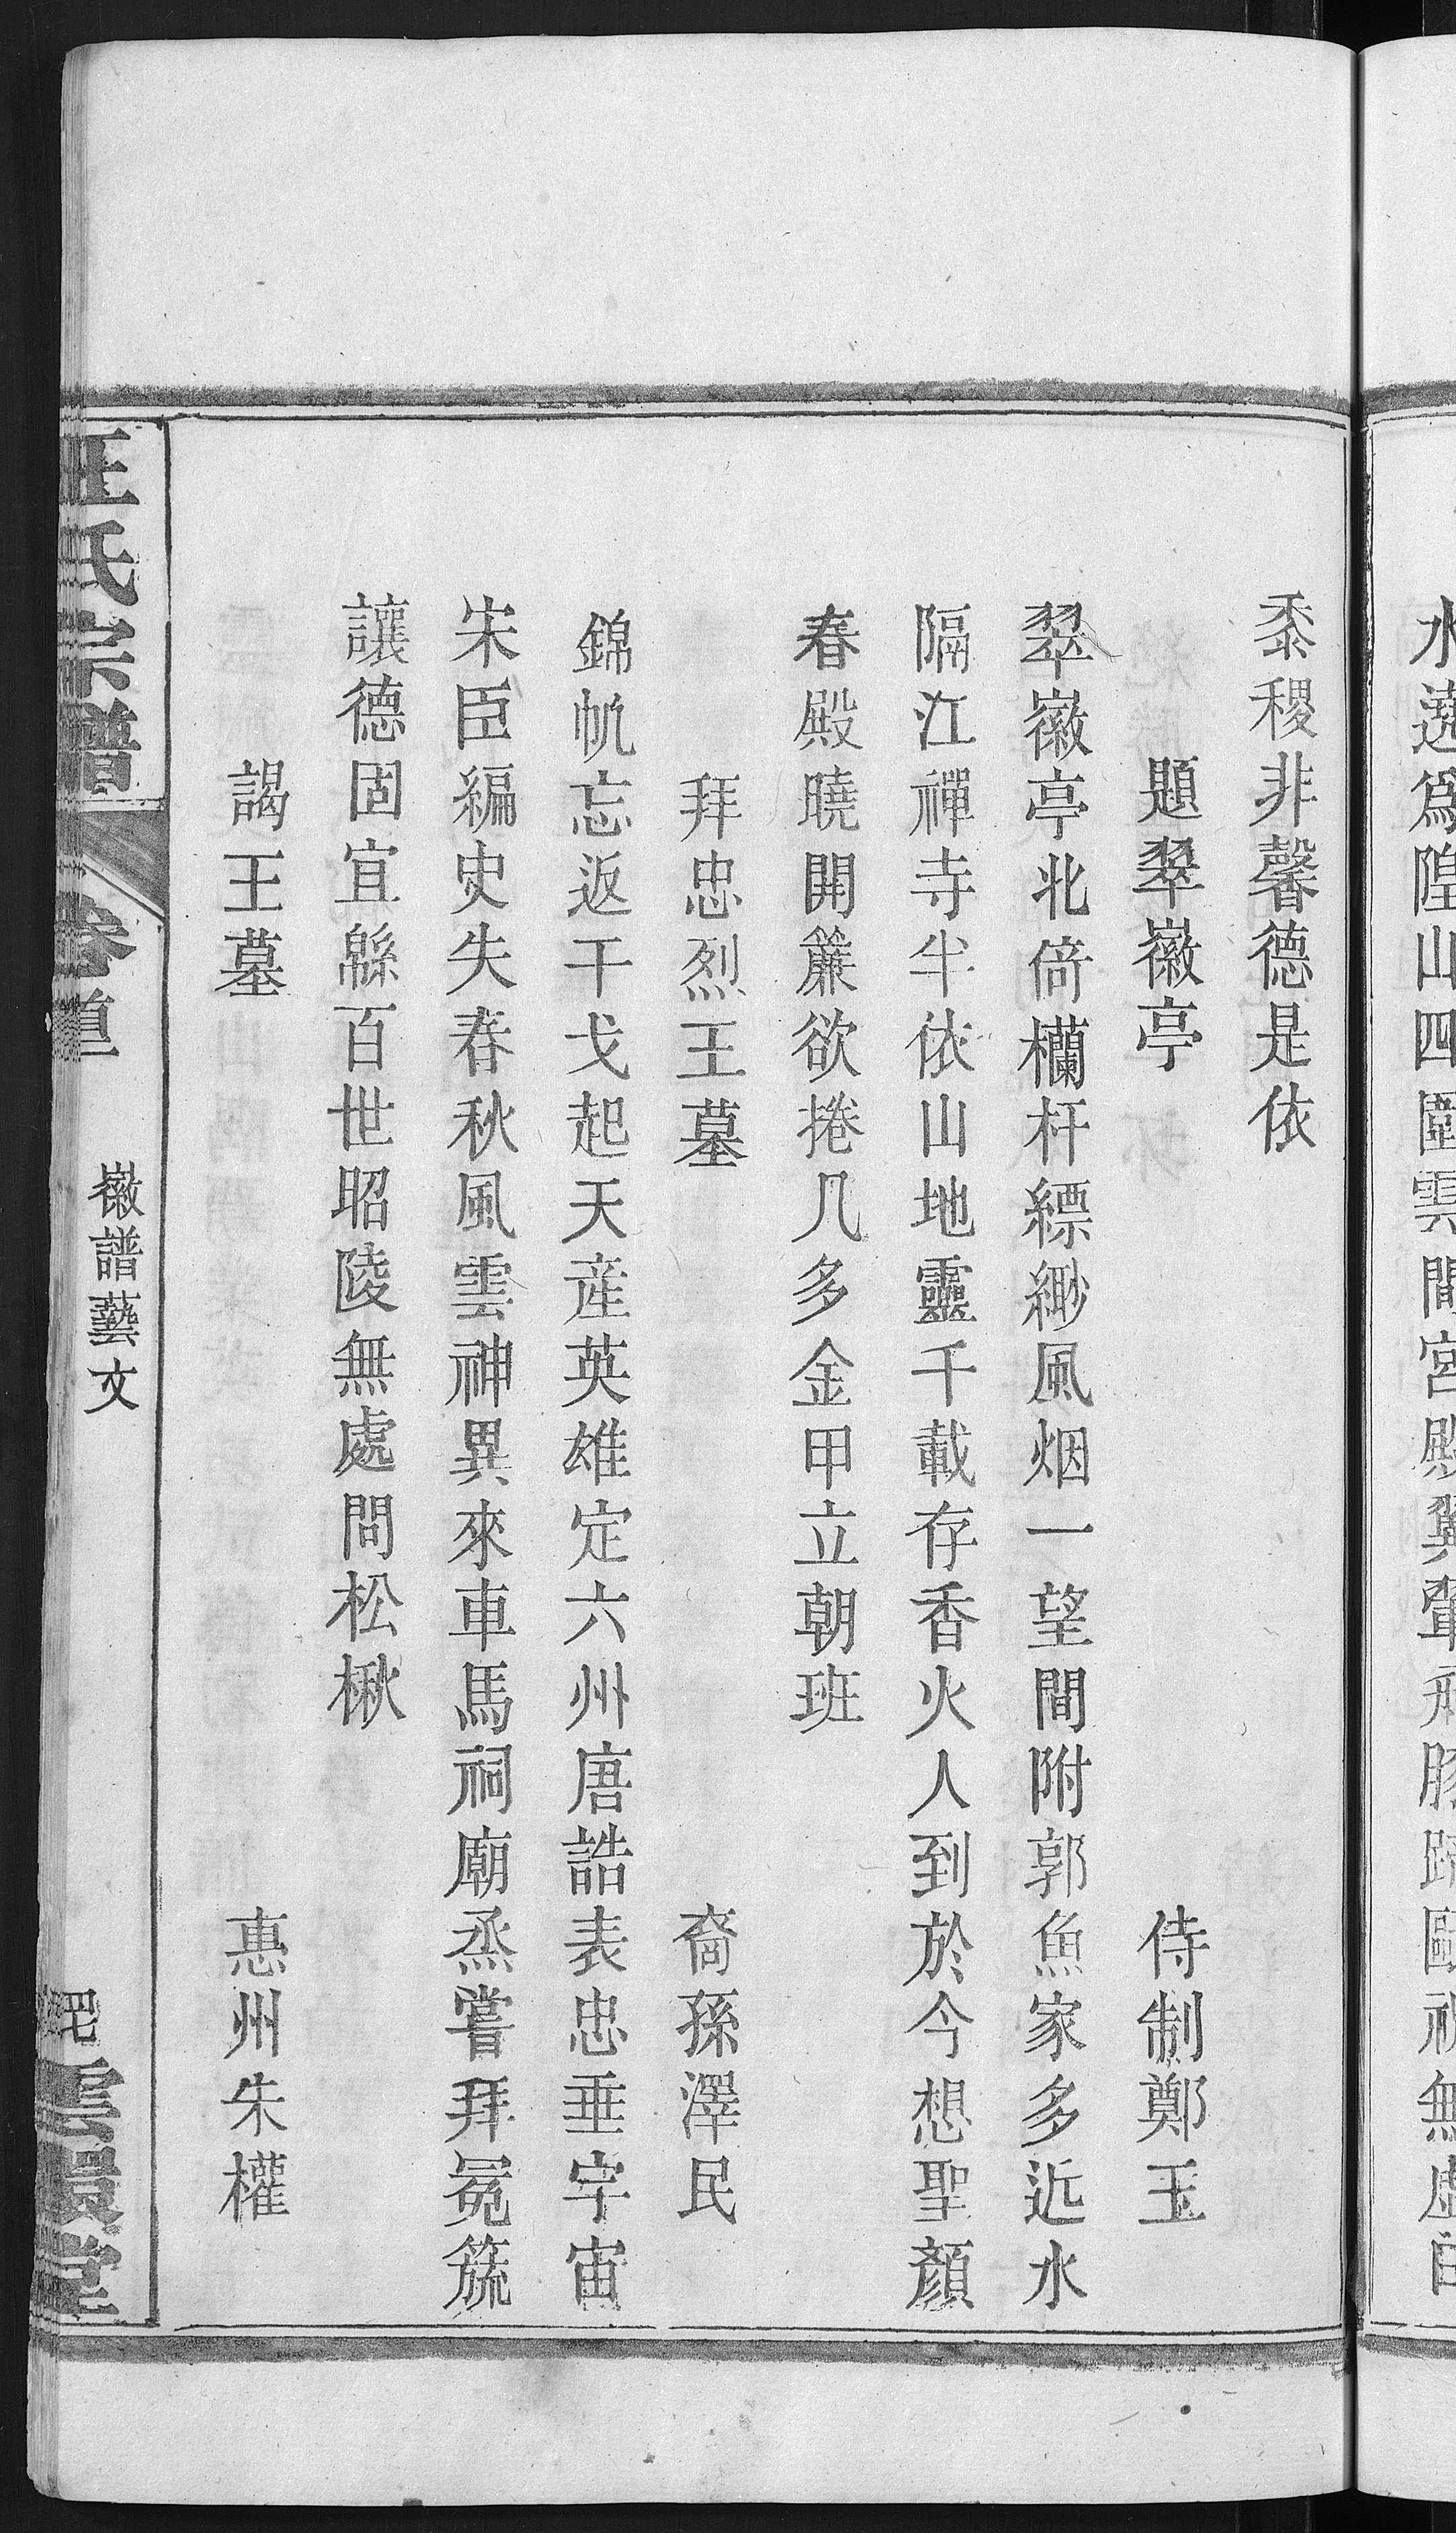 黍稷非馨德是依
題翠嶶亭
侍制鄭玉
翠嶶亭北倚欄杆縹緲風烟一望間附郭魚家多近水
隔江禪寺半依山地靈千載存香火人到於今想聖顏
春殿曉開簾欲捲几多金甲立朝班
拜忠烈王墓
裔孫澤民
錦帆忘返干戈起天産英雄定六州唐誥表忠垂宇宙
宋臣編史失春秋風雲神異來車馬祠廟烝嘗拜冕旒
讓德固宜緜百世昭陵無處問松楸
謁王墓
惠州朱權
氏宗譜
嶶譜藝文
堂